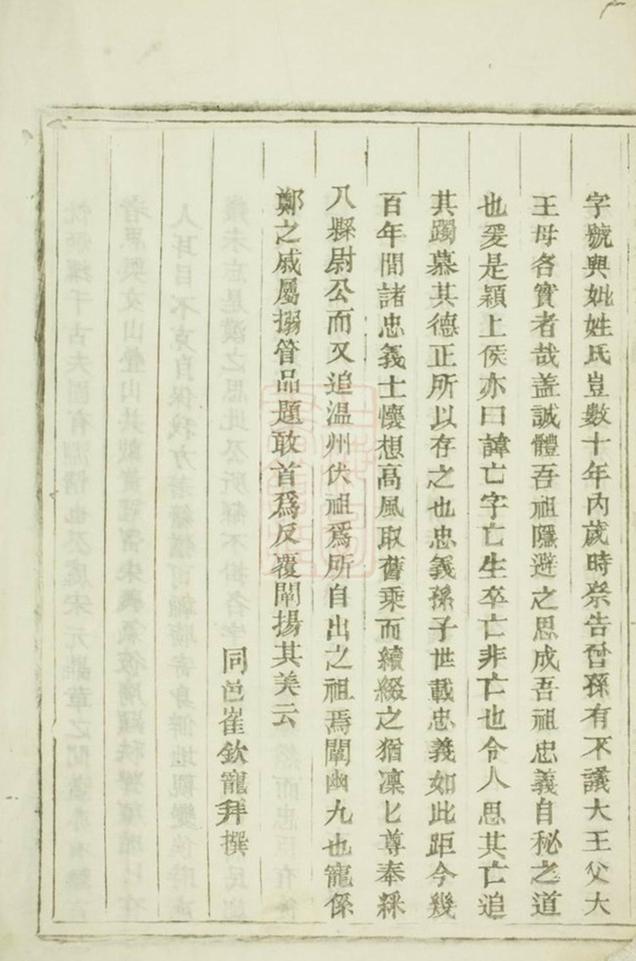 字號與妣姓氏豈數十年內歲時祭告曾孫有不議大王父大
王母各實者哉盖誠體吾祖隱避之思成吾祖忠義自秘之道
也爰是潁上侯亦曰諱亡字亡生卒亡非亡也令人思其亡追
其躅慕其德正所以存之也忠義孫子世載忠義如此距今幾
百年間諸忠義士懷想高風取舊乘而續綴之猶凜匕尊奉釆
八縣尉公而又追温州伏祖爲所自出之祖焉闡幽九也寵係
鄭之戚屬搦管品題敢首爲反覆闡揚其美云
同邑崔欽寵拜撰